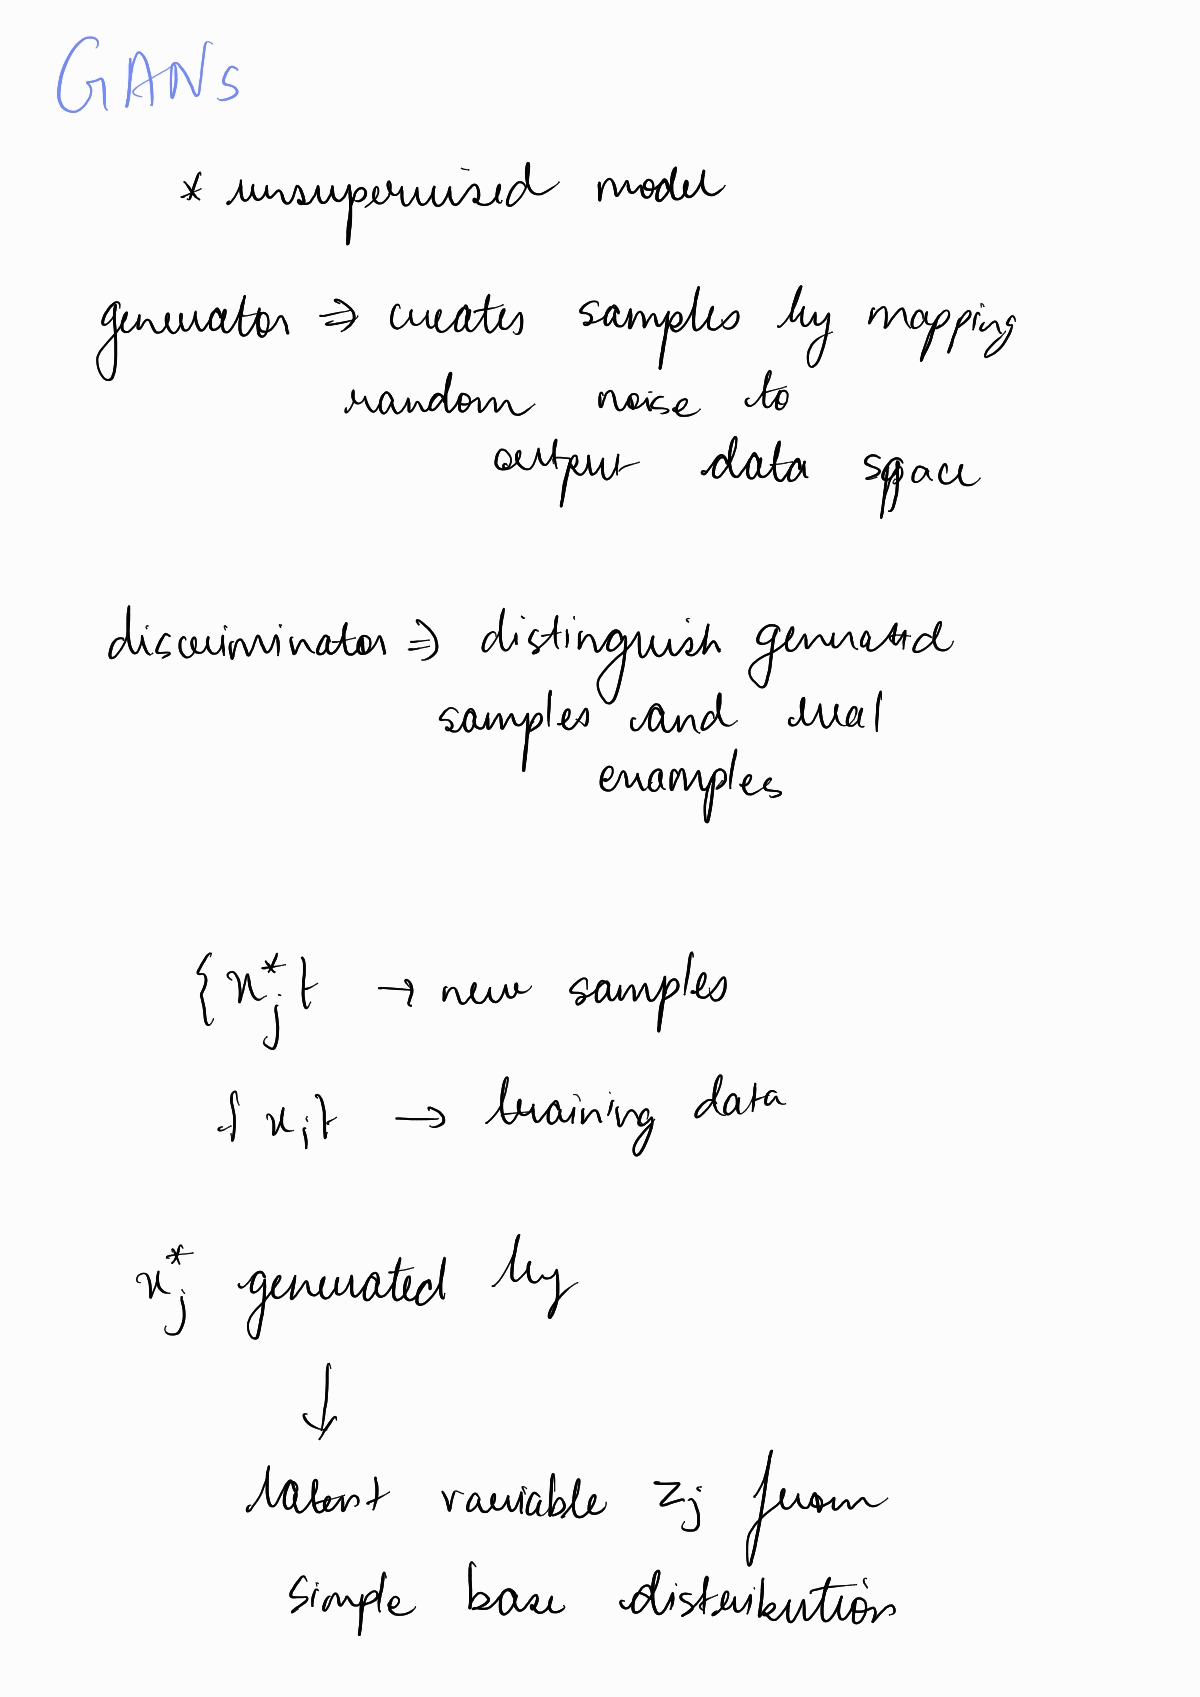 GANs
* unsupervised model
generator ⇒ creates samples by mapping
random noise to
output data space
discriminator ⇒ distinguish generated
samples and real
examples
{x*j} → new samples
{xi} → training data
x*j generated by
↓
latent variable zj from
simple base distribution